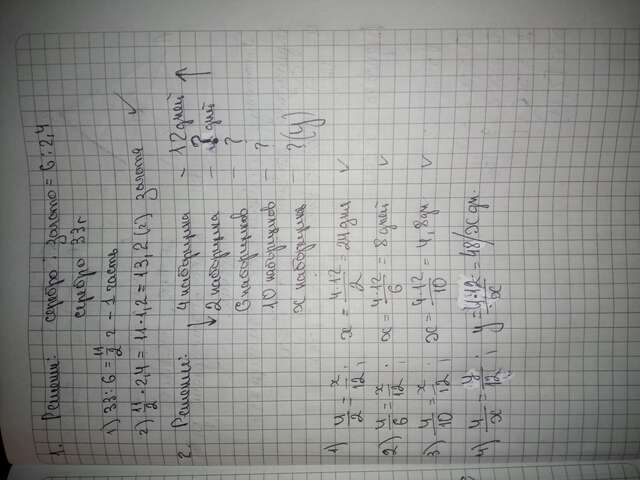 1. Решение: серебро : золото = 6 : 2,4
серебро 33 г
1) 33 : 6 = 11/2 г - 1 часть
2) 11/2 · 2,4 = 11 · 1,2 = 13,2 (г) золота ✓
2. Решение: 4 наборщика - 12 дней ↑
↓ 2 наборщика - ? дней
6 наборщиков - ?
10 наборщиков - ?
x наборщиков - ? (y)
1) 4/2 = x/12 ; x = 4·12/2 = 24 дня ✓
2) 4/6 = x/12 ; x = 4·12/6 = 8 дней ✓
3) 4/10 = x/12 ; x = 4·12/10 = 4,8 дн. ✓
4) 4/x = y/12 ; y = 4·12/x = 48/x дн.